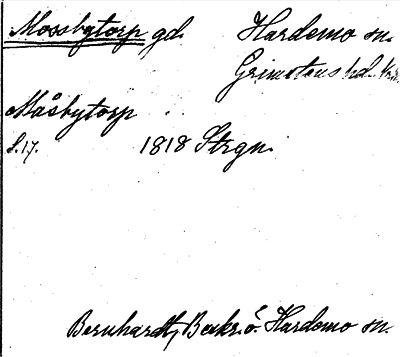 Mossbytorp gd. Hardemo sn.
Grimstens hd.
Måsbytorp
S.17. 1818 Strgn.
Bernhardt, Hardemo sn.